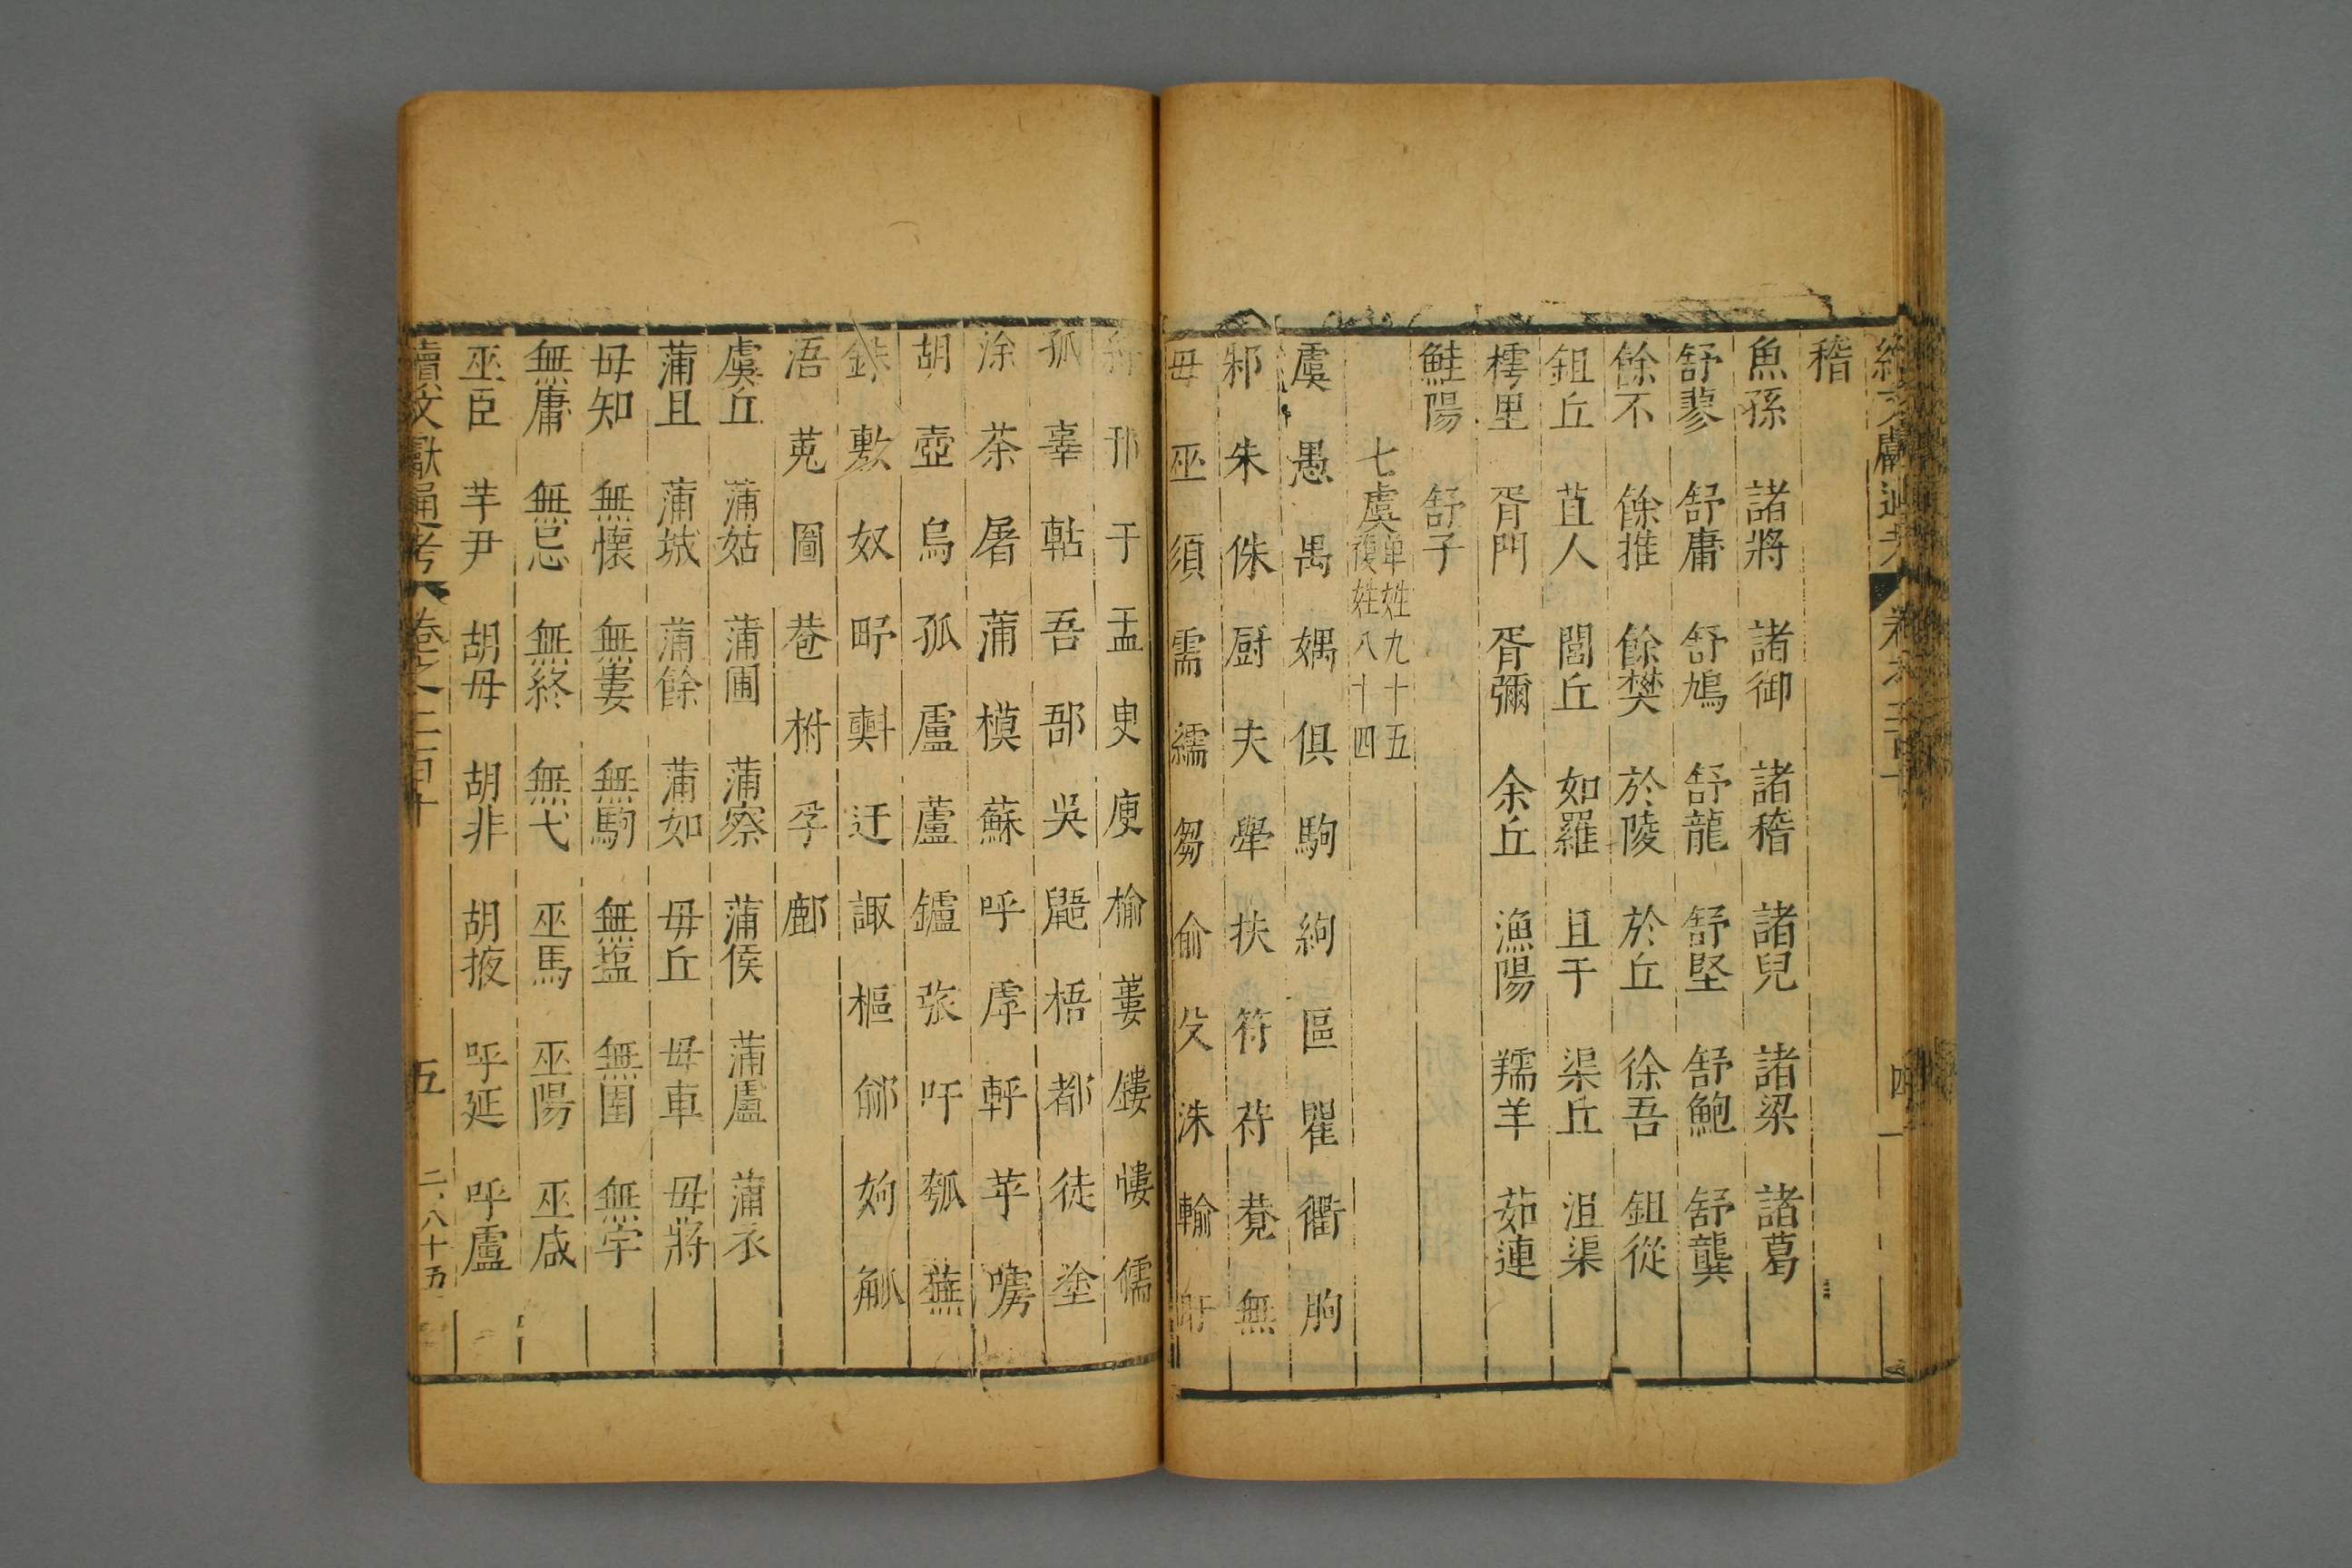 稽
魚孫 諸將 諸御 諸稽 諸兒 諸梁 諸葛
舒蓼 舒庸 舒鳩 舒龍 舒堅 舒鮑 舒龔
餘不 餘推 餘樊 於陵 於丘 徐吾 鉏從
鉏丘 苴人 閭丘 如羅 且于 渠丘 沮渠
樗里 胥門 胥彌 余丘 漁陽 羺羊 茹連
鮭陽 舒子
七虞 单姓九十五 復姓八十四
虞 愚 禺 媀 俱 駒 絢 區 瞿 衢 朐
邾 朱 侏 厨 夫 犖 扶 符 苻 莌 無
毋 巫 須 需 繻 芻 俞 殳 洙 輸
邘 于 盂 臾 庾 榆 蔞 鏤 慺 儒
孤 辜 軲 吾 郚 吳 鼯 梧 都 徒 塗
涂 荼 屠 蒲 模 蘇 呼 虖 軤 苹 嘑
胡 壺 烏 狐 盧 蘆 鑪 弙 吁 瓠 蕪
銖 敷 奴 㽥 㪺 迂 諏 樞 鄃 姁 觚
浯 蒐 圖 菤 柎 孚 鄜
虞丘 蒲姑 蒲圃 蒲察 蒲侯 蒲盧 蒲衣
蒲且 蒲城 蒲餘 蒲如 毋丘 毋車 毋將
毋知 無懷 無婁 無駒 無塩 無圉 無宇
無庸 無忌 無終 無弋 巫馬 巫陽 巫咸
巫臣 芋尹 胡毋 胡非 胡掖 呼延 呼盧
續文獻通考 卷之二百十 五 二、八十五